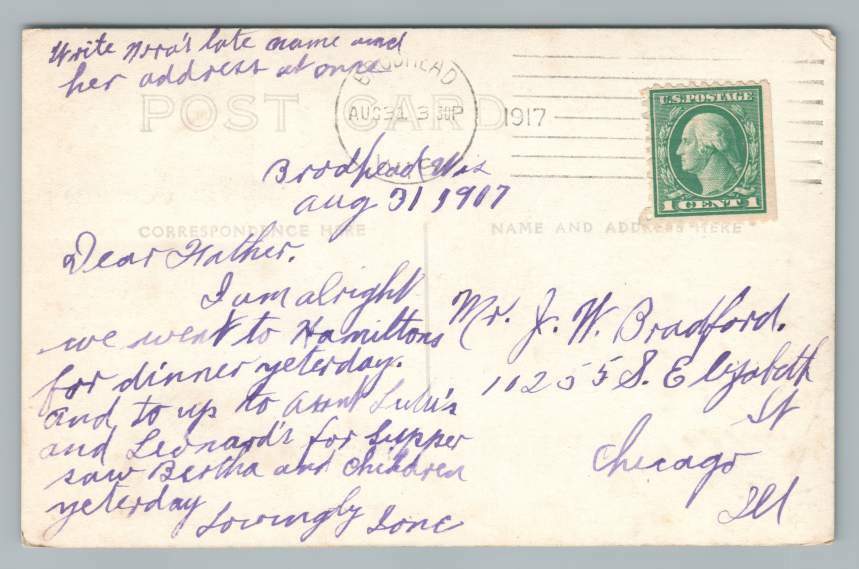 Write Nora's late name and
her address at once
POST CARD
BRODHEAD
AUG 31 3 30P
1917
WIS.
U.S. POSTAGE
1 CENT 1
Brodhead Wis
Aug 31, 1917
CORRESPONDENCE HERE
NAME AND ADDRESS HERE
Dear Father.
I am alright
we went to Hamiltons
for dinner yesterday.
and to up to Aunt Lulu's
and Leonard's for supper
saw Bertha and Children
yesterday
Lovingly Ione
Mr. J. W. Bradford.
10255 S. Elizabeth
St
Chicago
Ill